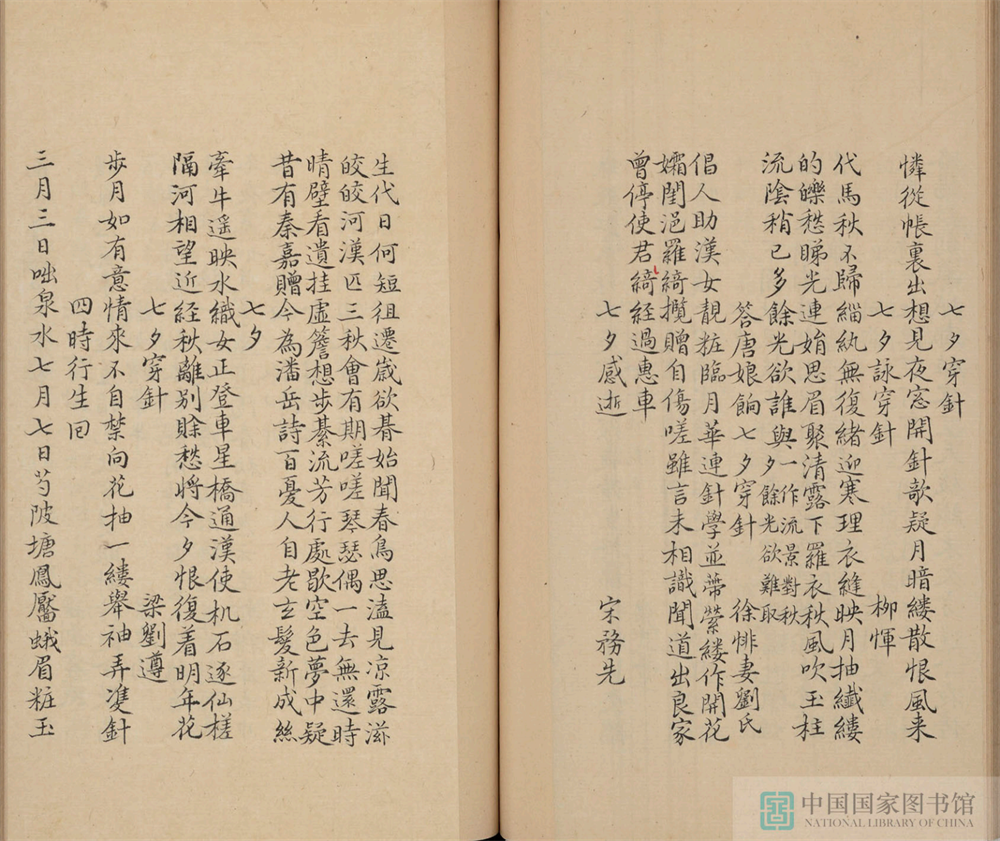 七夕穿針
憐從帳裏出想見夜窓開針欹疑月暗縷散恨風来
七夕詠穿針 柳惲
代馬秋不歸緇紈無復緒迎寒理衣縫映月抽纖縷
的皪愁睇光連娟思眉聚清露下羅衣秋風吹玉柱
流陰稍已多餘光欲誰與一作流景對秋夕餘光欲難取
答唐娘餉七夕穿針 徐悱妻劉氏
倡人助漢女靚粧臨月華連針學並蔕縈縷作開花
孀閨浥羅綺攬贈自傷嗟雖言未相識聞道出良家
曾停使君綺經過惠車
七夕感逝 宋務先
生代日何短徂遷歳欲朞始聞春鳥思溘見涼露滋
皎皎河漢匹三秋會有期嗟嗟琴瑟偶一去無還時
晴壁看遺挂虚簷想步綦流芳行處歇空色夢中疑
昔有秦嘉贈今為潘岳詩百憂人自老玄髮新成絲
七夕
牽牛遥映水織女正登車星橋通漢使机石逐仙槎
隔河相望近經秋離别賖愁將今夕恨復着明年花
七夕穿針 梁劉遵
步月如有意情來不自禁向花抽一縷舉袖弄雙針
四時行生回
三月三日咄泉水七月七日芍陂塘鳳靨蛾眉粧玉
中国国家图书馆
NATIONAL LIBRARY OF CHINA